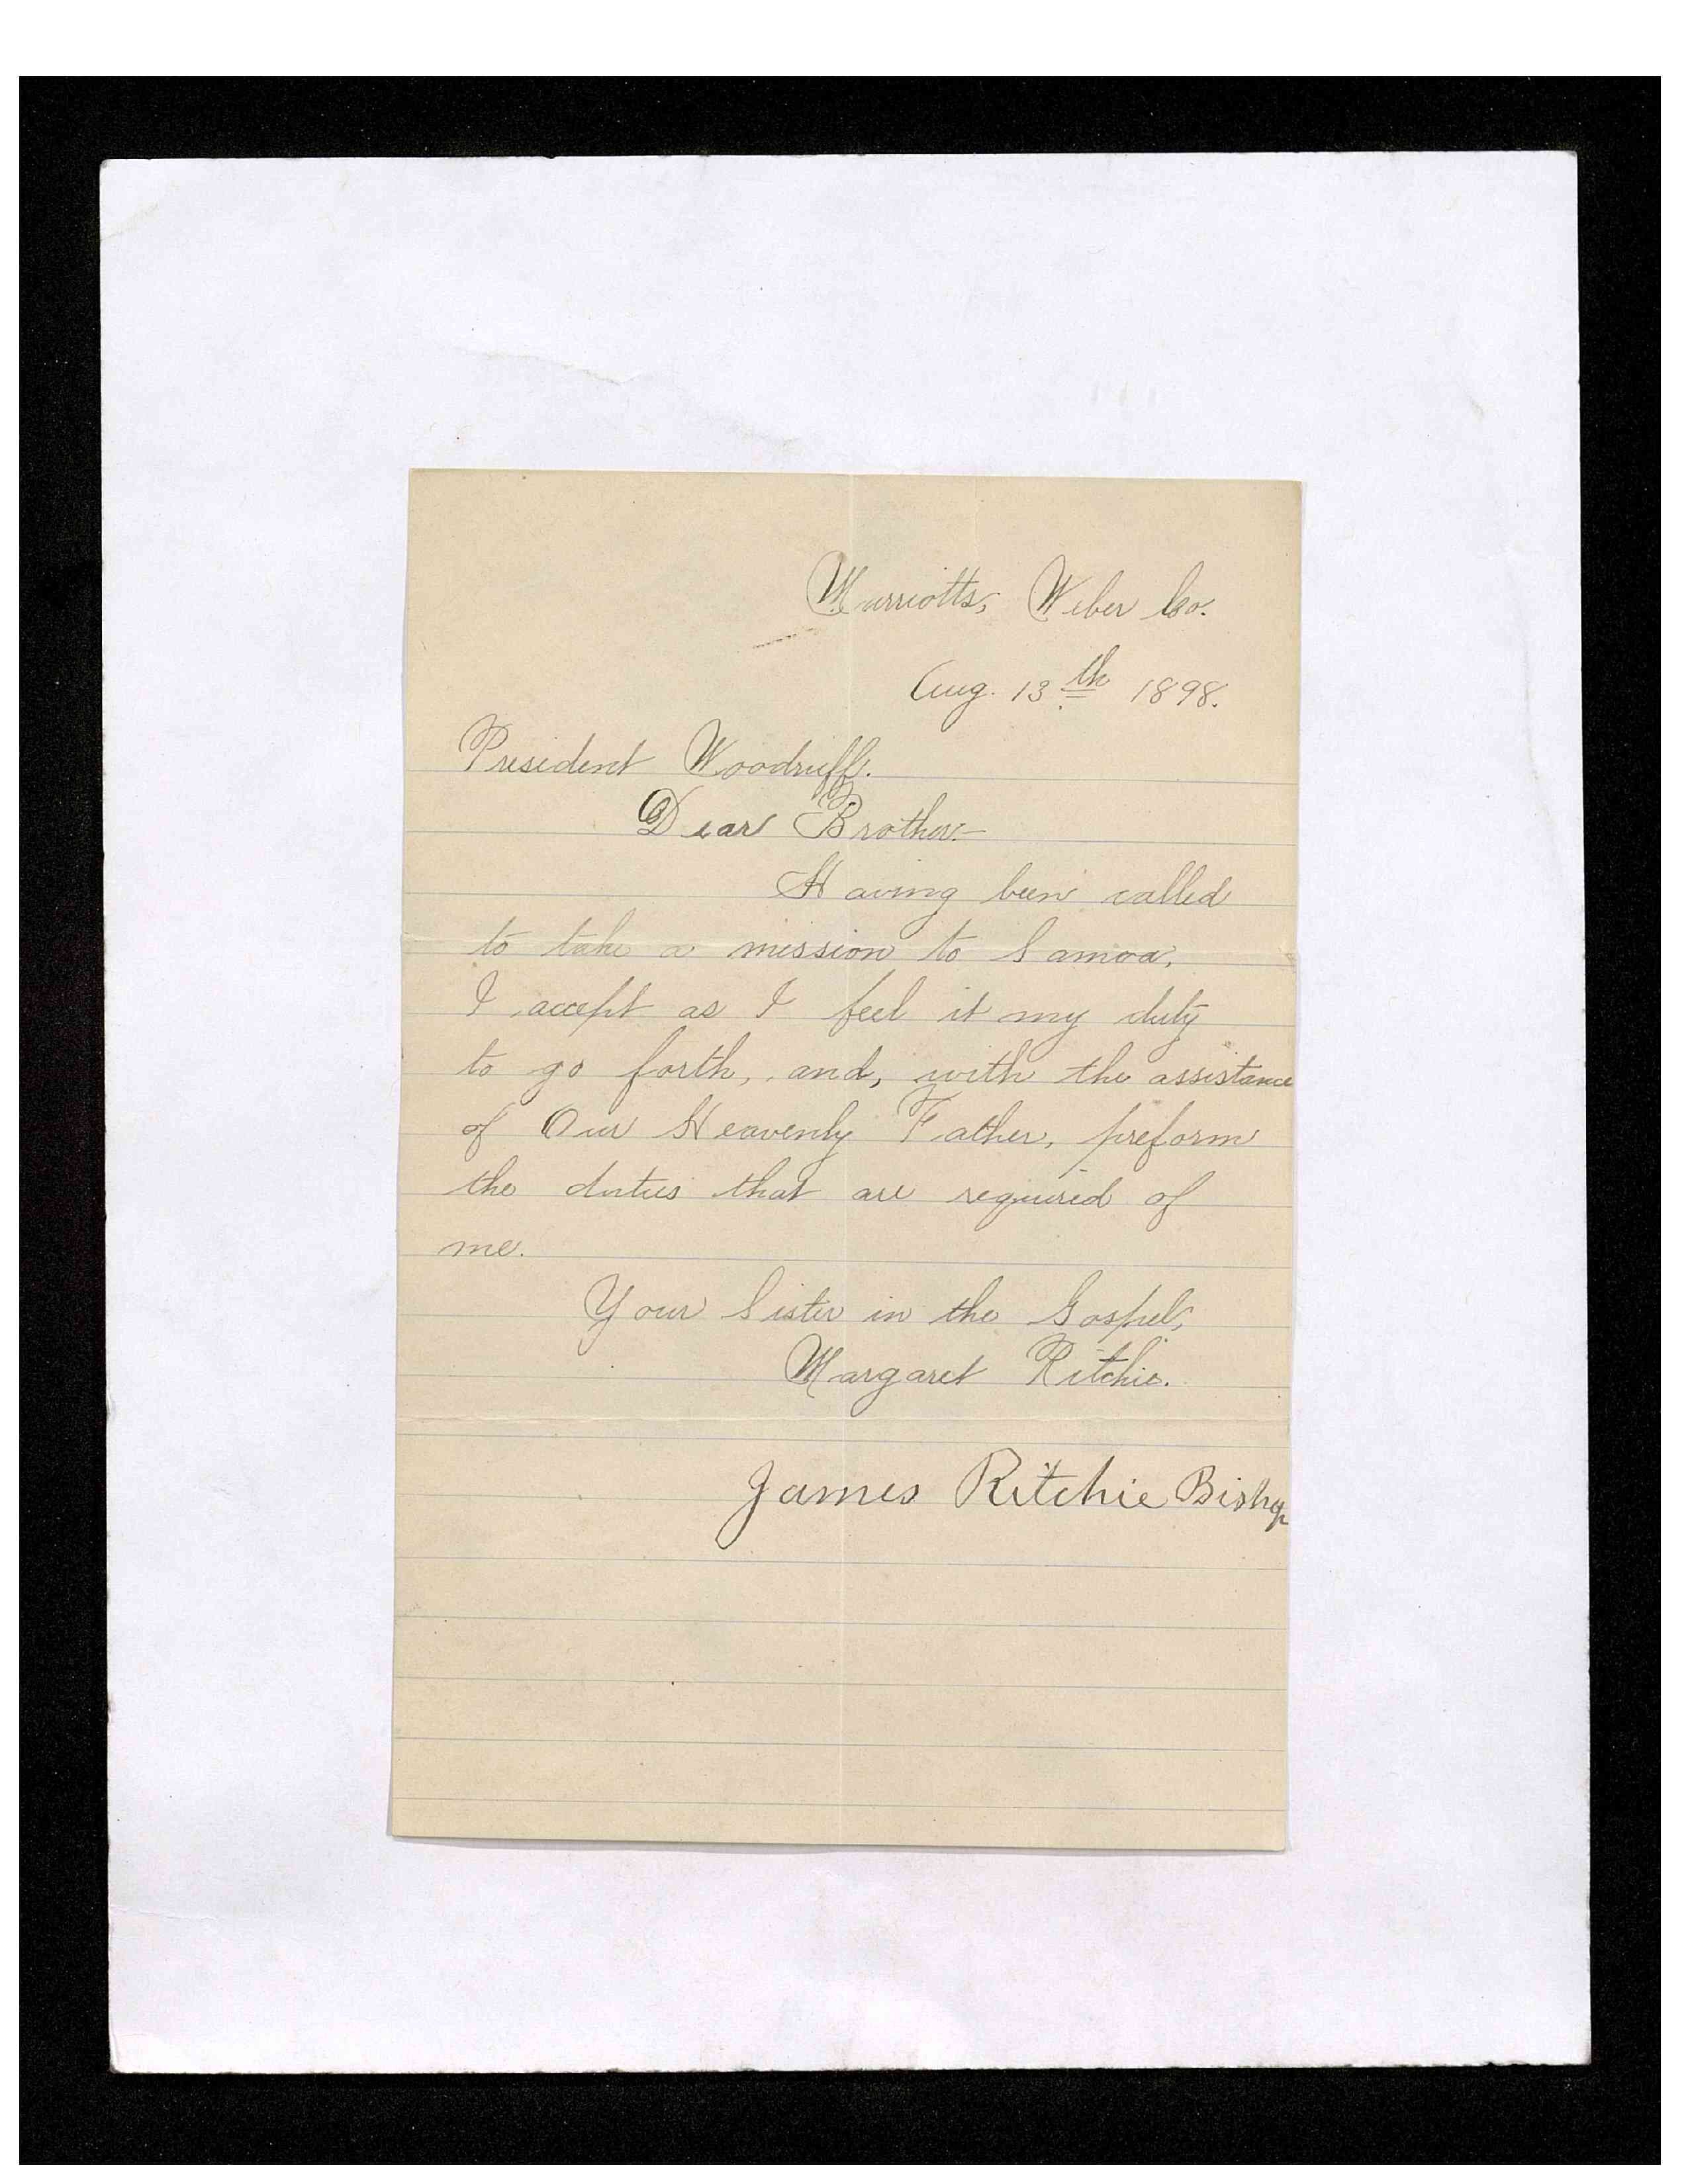 Marriotts, Weber Co.
Aug. 13th 1898.
President Woodruff.
Dear Brother.—
Having been called
to take a mission to Samoa,
I accept as I feel it my duty
to go forth, and, with the assistance
of Our Heavenly Father, preform
the duties that are required of
me.
Your Sister in the Gospel,
Margaret Ritchie.
James Ritchie Bishop